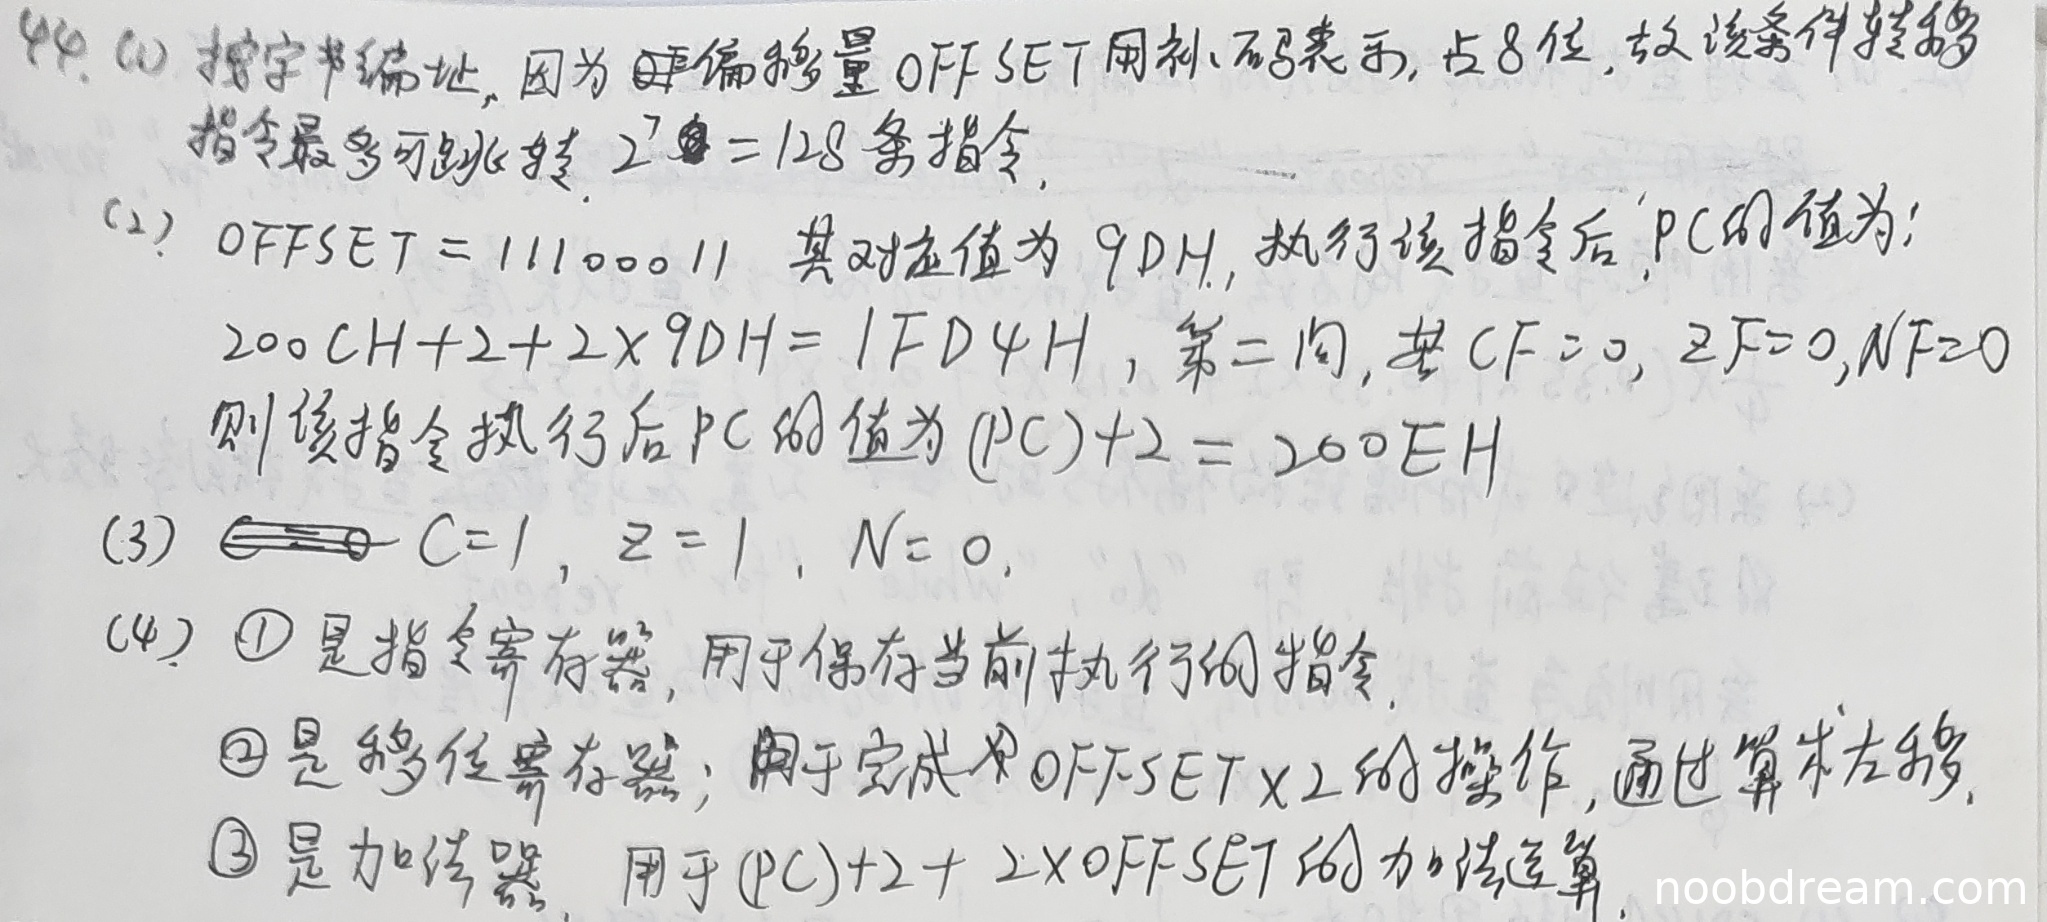 44. (1) 按字节编址, 因为偏移量OFFSET用补码表示, 占8位, 故该条件转移
指令最多可跳转 2^7 = 128 条指令.
(2) OFFSET = 11100011 其对应值为 9DH, 执行该指令后, PC的值为:
200CH+2+2×9DH = 1FD4H, 第二问, 若 CF=0, ZF=0, NF=0
则该指令执行后PC的值为(PC)+2 = 200EH
(3) C=1, Z=1, N=0.
(4) ① 是指令寄存器, 用于保存当前执行的指令.
② 是移位寄存器; 用于完成OFFSET×2的操作, 通过算术左移.
③ 是加法器, 用于(PC)+2+2×OFFSET的加法运算.
noobdream.com